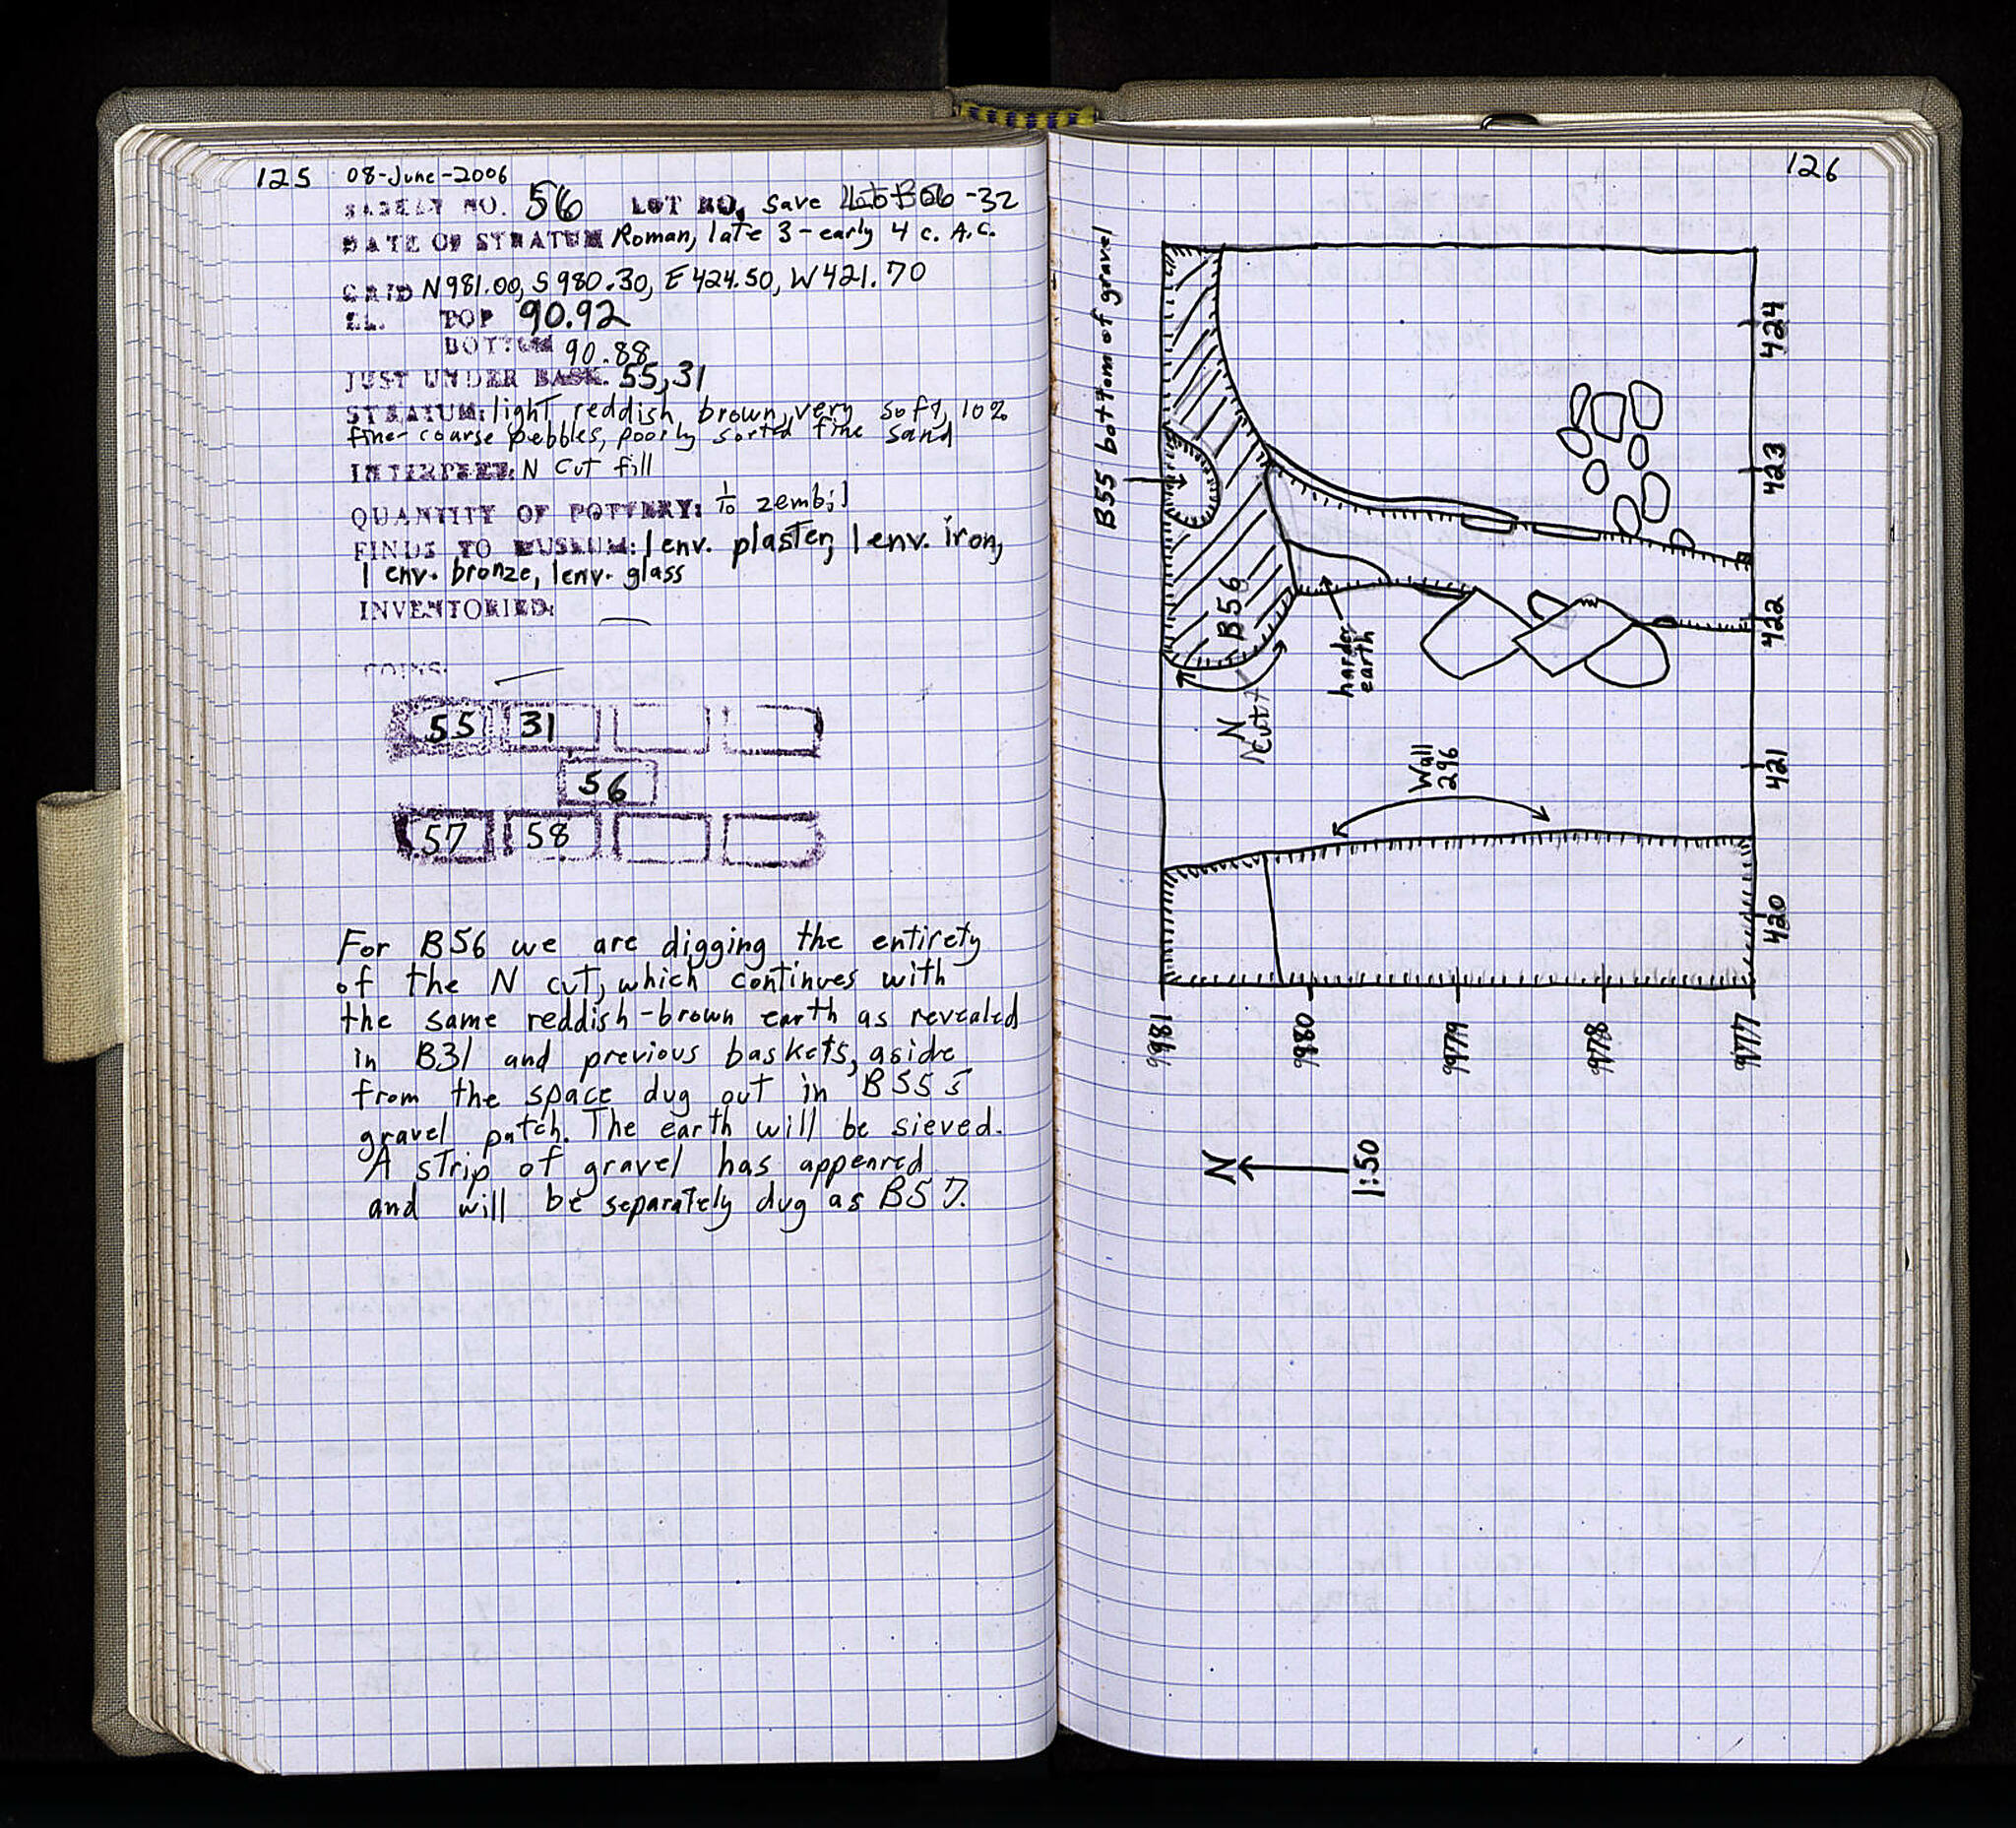 125 08-June-2006
BASKET NO. 56 LOT NO. save Lot B56-32
DATE OF STRATUM Roman, late 3-early 4 c. A.C.
GRID N981.00, S980.30, E424.50, W421.70
EL. TOP 90.92
BOTTOM 90.88
JUST UNDER BASK. 55, 31
STRATUM: light reddish brown, very soft, 10%
fine-coarse pebbles, poorly sorted fine sand
INTERPRET: N cut fill
QUANTITY OF POTTERY: 1/10 zembil
FINDS TO MUSEUM: 1 env. plaster, 1 env. iron,
1 env. bronze, 1 env. glass
INVENTORIED: —
COINS: —
55 31
56
57 58
For B56 we are digging the entirety
of the N cut, which continues with
the same reddish-brown earth as revealed
in B31 and previous baskets, aside
from the space dug out in B55's
gravel patch. The earth will be sieved.
A strip of gravel has appeared
and will be separately dug as B57.
126
B55 bottom of gravel
B56
N
Cut
harder
earth
Wall
296
424
423
422
421
420
981
980
979
978
977
N
1:50